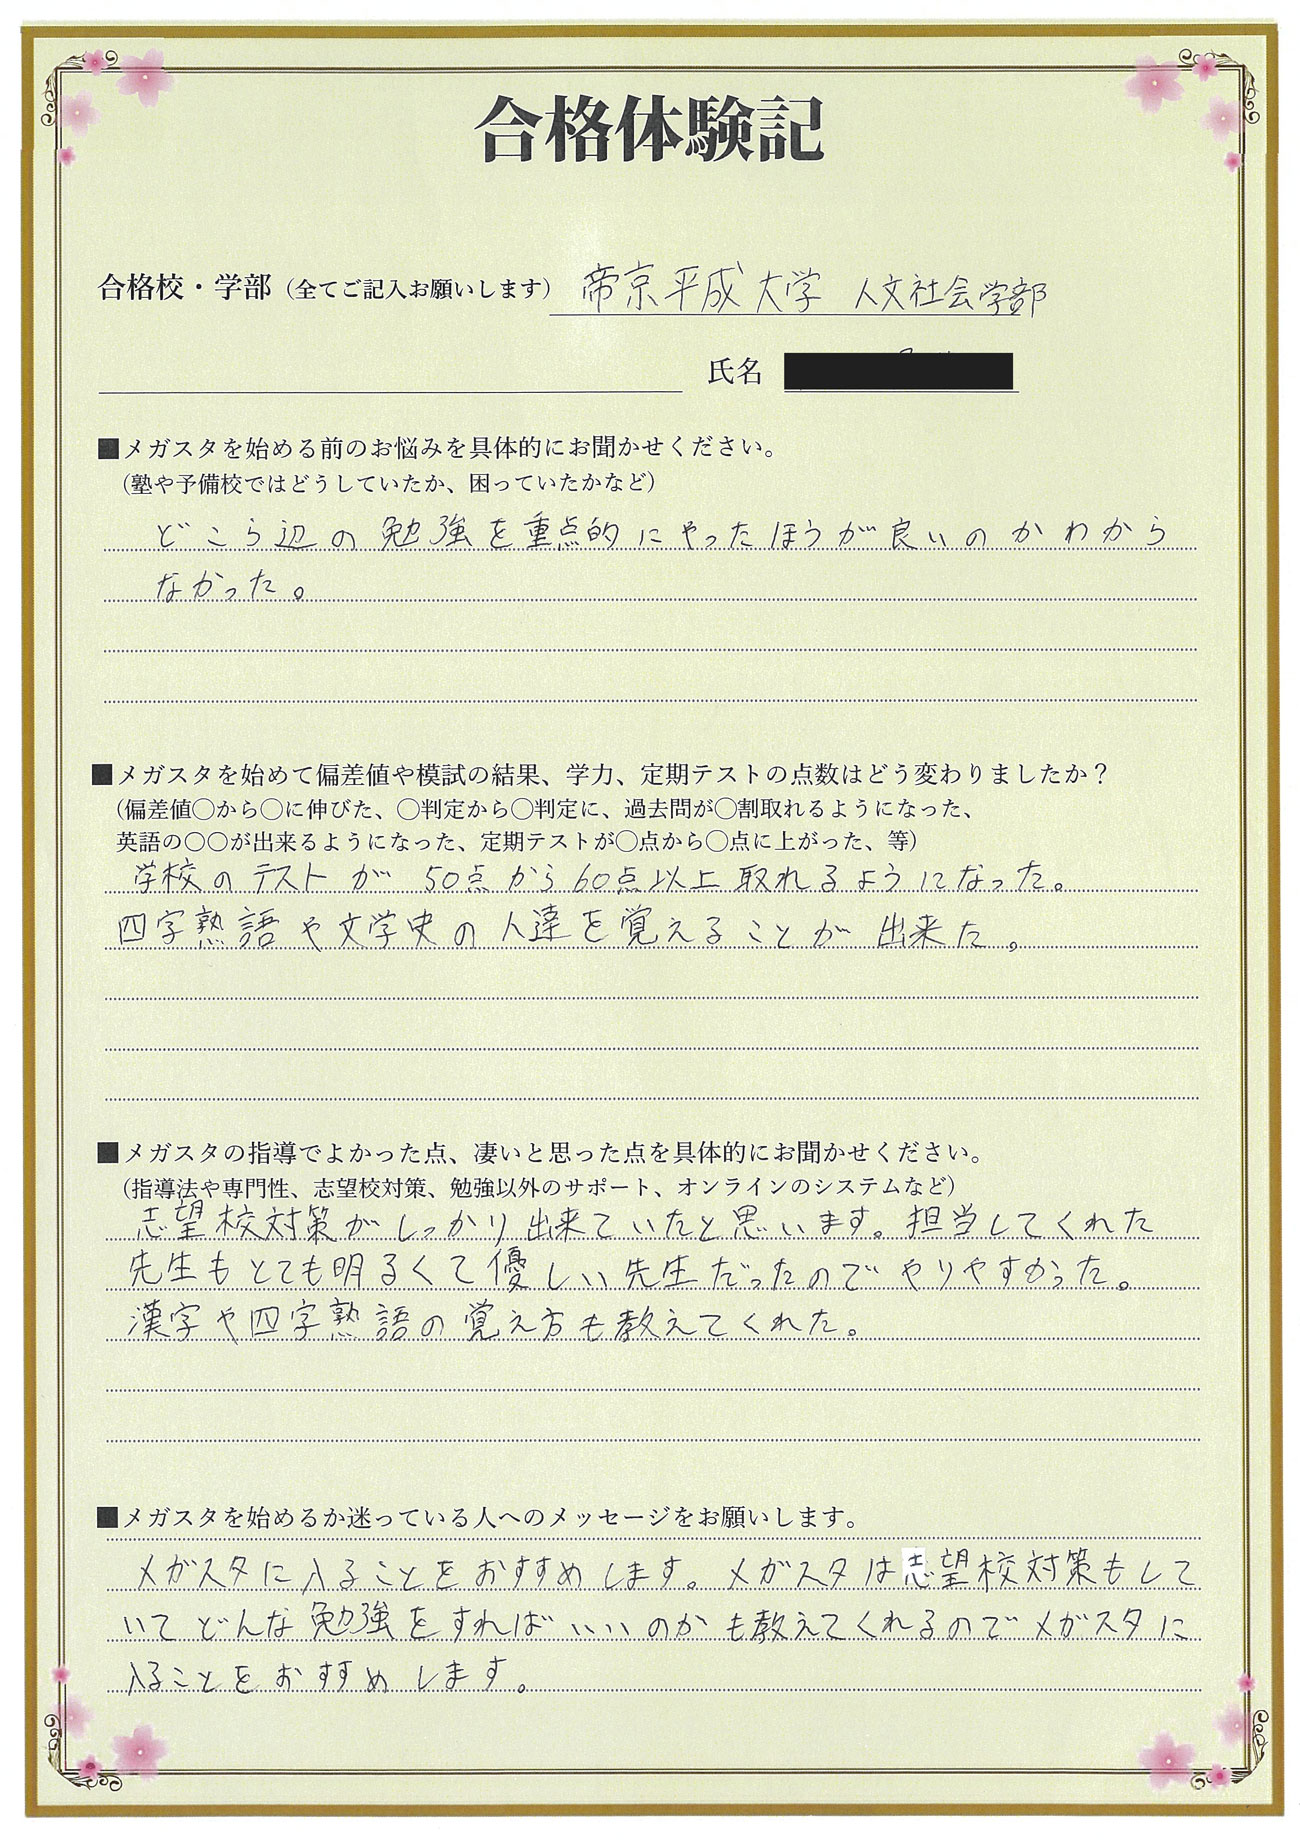 合格体験記
合格校・学部（全てご記入お願いします） 帝京平成大学 人文社会学部
氏名
■メガスタを始める前のお悩みを具体的にお聞かせください。
（塾や予備校ではどうしていたか、困っていたかなど）
どこら辺の勉強を重点的にやったほうが良いのかわから
なかった。
■メガスタを始めて偏差値や模試の結果、学力、定期テストの点数はどう変わりましたか？
（偏差値〇から〇に伸びた、〇判定から〇判定に、過去問が〇割取れるようになった、
英語の〇〇が出来るようになった、定期テストが〇点から〇点に上がった、等）
学校のテストが50点から60点以上取れるようになった。
四字熟語や文学史の人達を覚えることが出来た。
■メガスタの指導でよかった点、凄いと思った点を具体的にお聞かせください。
（指導法や専門性、志望校対策、勉強以外のサポート、オンラインのシステムなど）
志望校対策がしっかり出来ていたと思います。担当してくれた
先生もとても明るくて優しい先生だったのでやりやすかった。
漢字や四字熟語の覚え方も教えてくれた。
■メガスタを始めるか迷っている人へのメッセージをお願いします。
メガスタに入ることをおすすめします。メガスタは志望校対策もして
いてどんな勉強をすればいいのかも教えてくれるのでメガスタに
入ることをおすすめします。